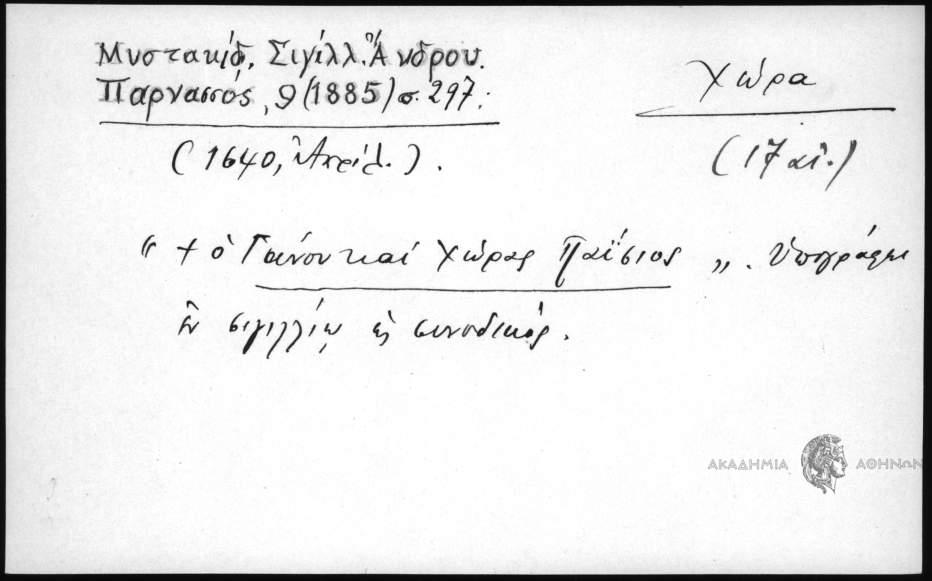 Μυστακίδ. Σιγίλλ. Ἄνδρου.
Παρνασσός, 9 (1885) σ. 297:
(1640, Ἀπρίλ.).
Χώρα
(17 αἰ.)
“ + ὁ Γάνου καί Χώρας Παΐσιος „. Ὑπογράφει
ἐν σιγιλλίῳ ὡς συνοδικός.
ΑΚΑΔΗΜΙΑ ΑΘΗΝΩΝ